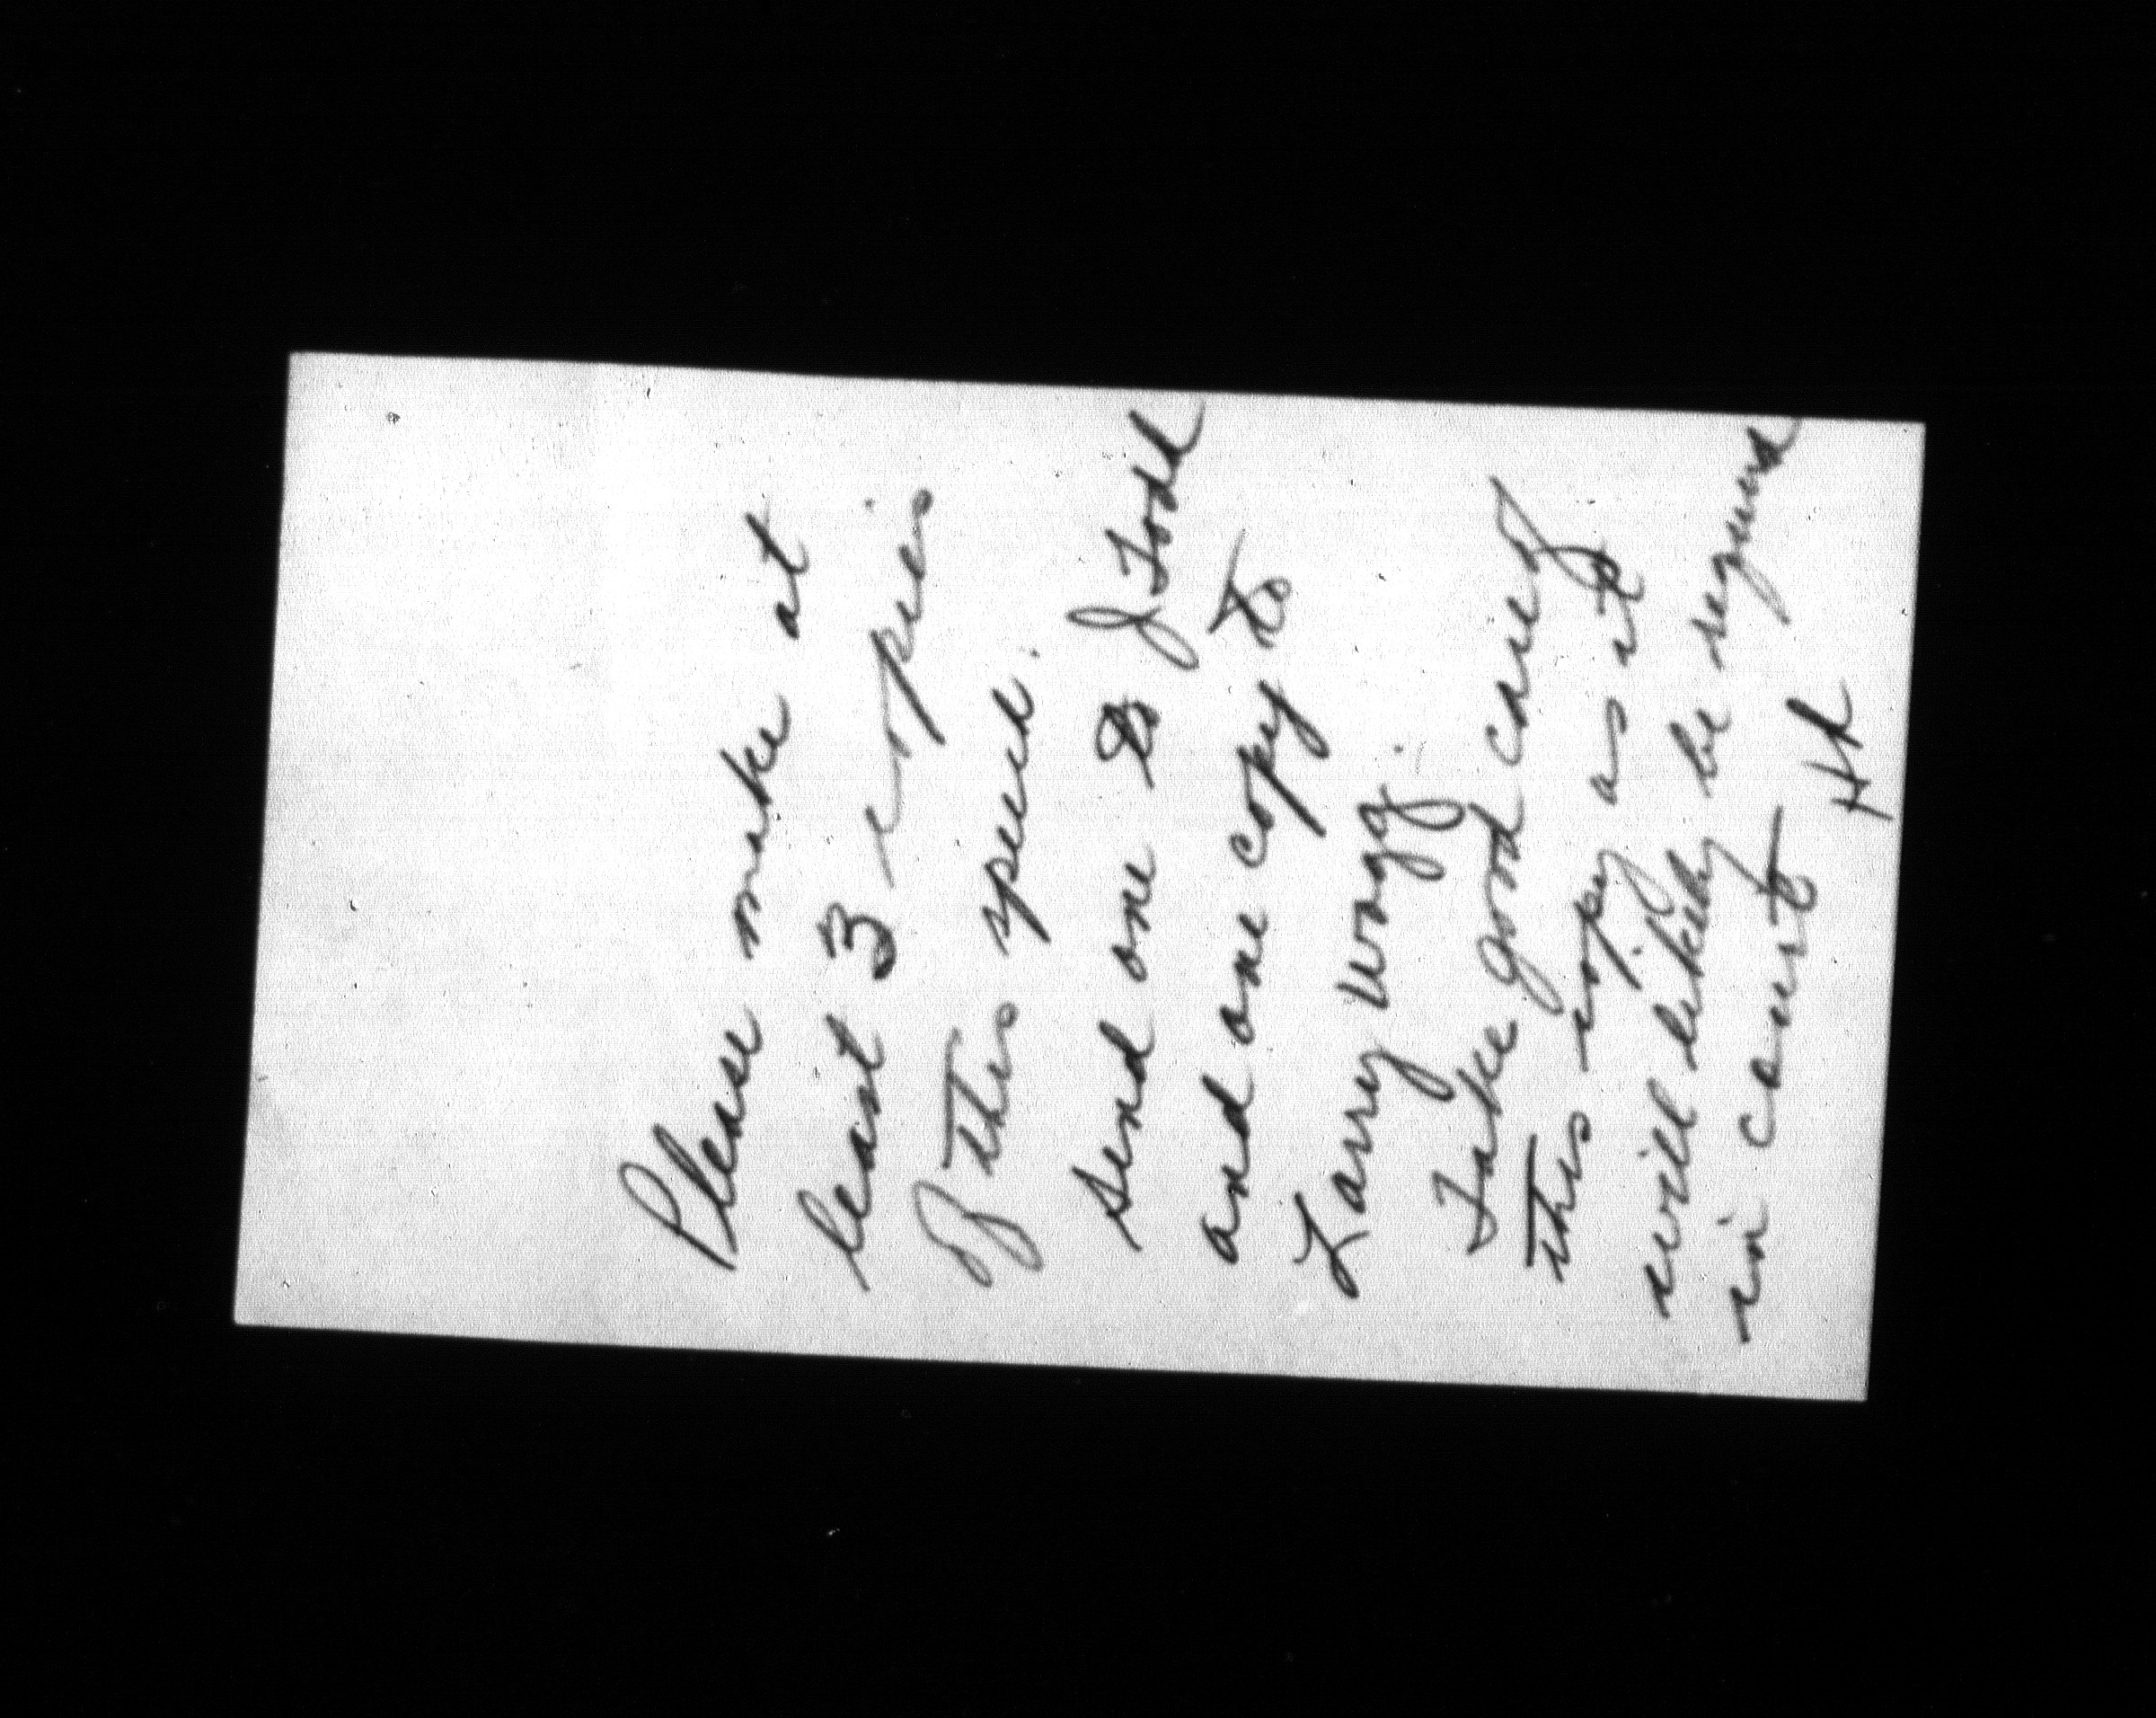 Please make at
least 3 copies
of this speech.
Send one to J Todd
and one copy to
Larry Wogg.
Take good care of
this copy as it
will likely be required
in court HH